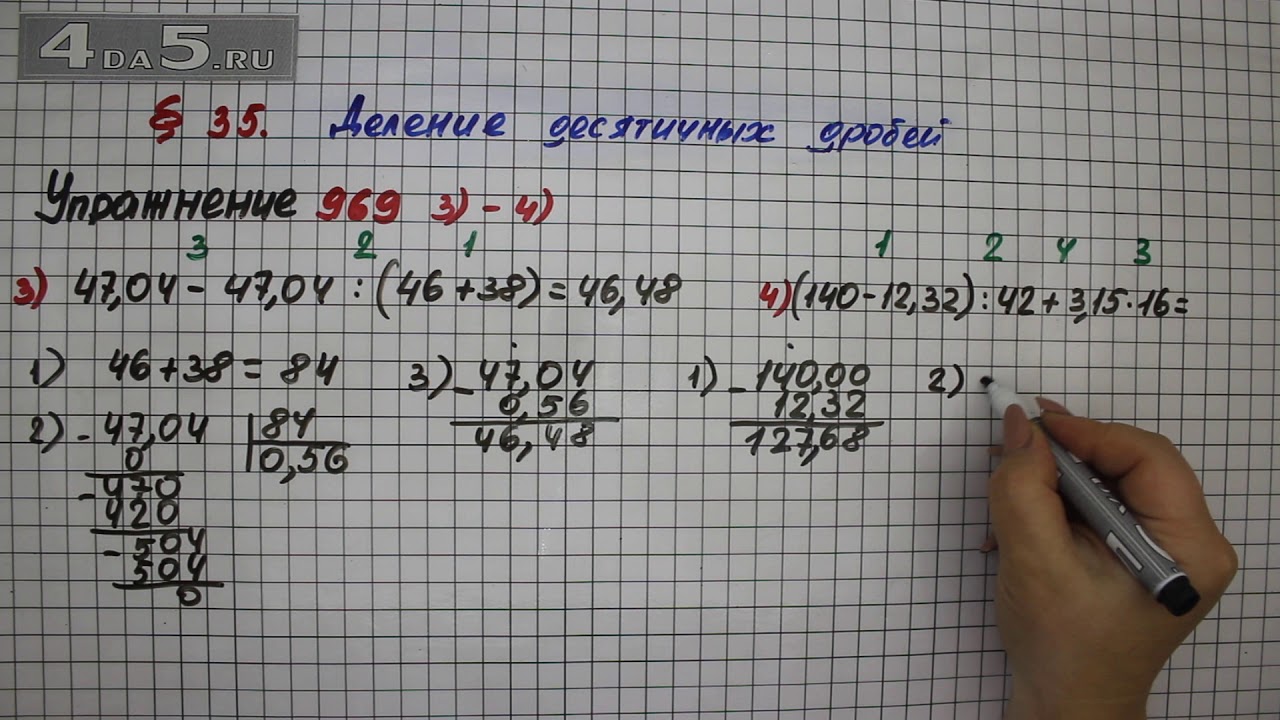 4DA5.RU
§ 35. Деление десятичных дробей
Упражнение 969 3) - 4)
3 2 1
3) 47,04 - 47,04 : (46 + 38) = 46,48
1) 46 + 38 = 84
2) - 47,04 84
0 0,56
- 470
420
- 504
504
0
3) - 47,04
0,56
46,48
1 2 4 3
4) (140 - 12,32) : 42 + 3,15 · 16 =
1) - 140,00
12,32
127,68
2)